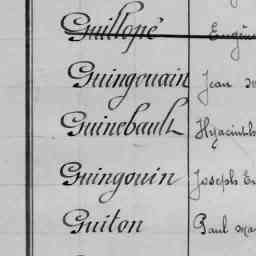 Guillopé Eugène
Guingouain Jean
Guinebault Hyacinthe
Guingouin Joseph
Guiton Paul